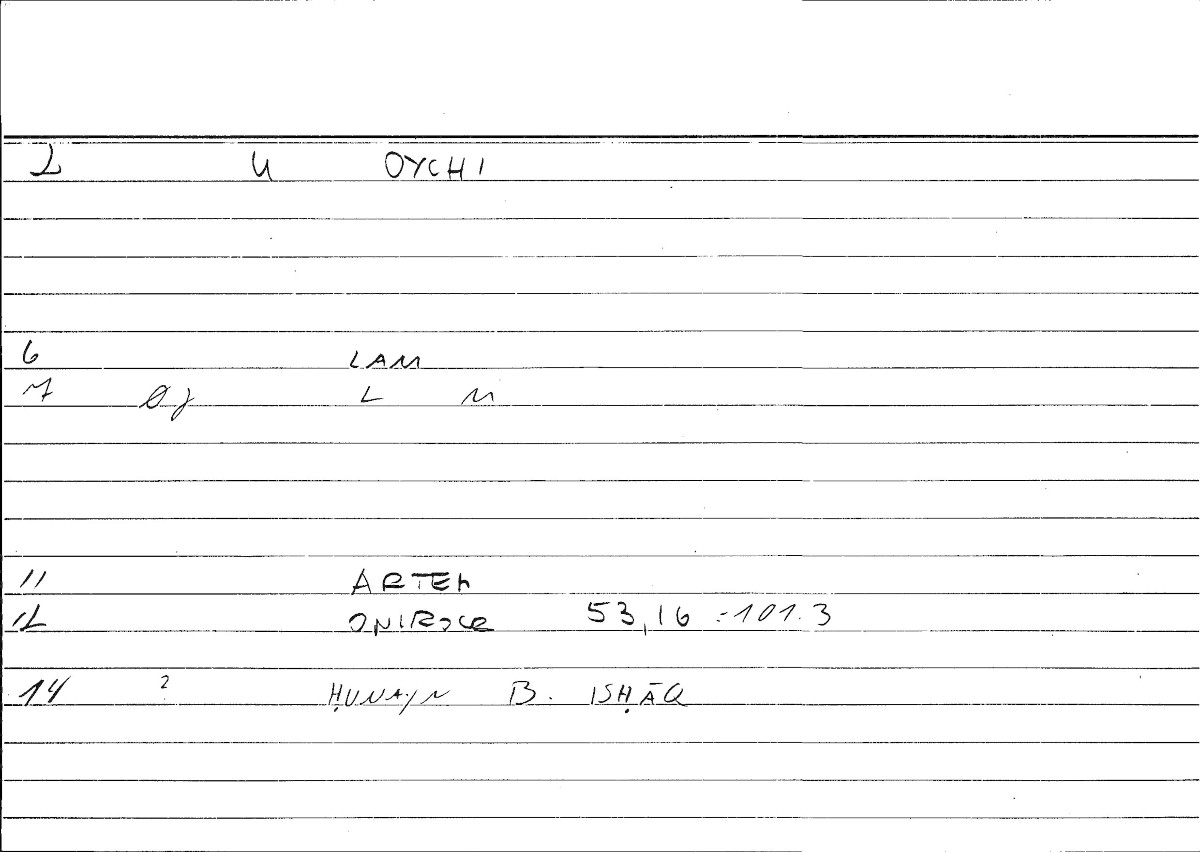 2 U OYCHI
6 LAM
7 Øj L M
11 ARTEM
12 ONIROCR 53,16 = 101.3
14 ? ḤUNAYN B. ISḤĀQ